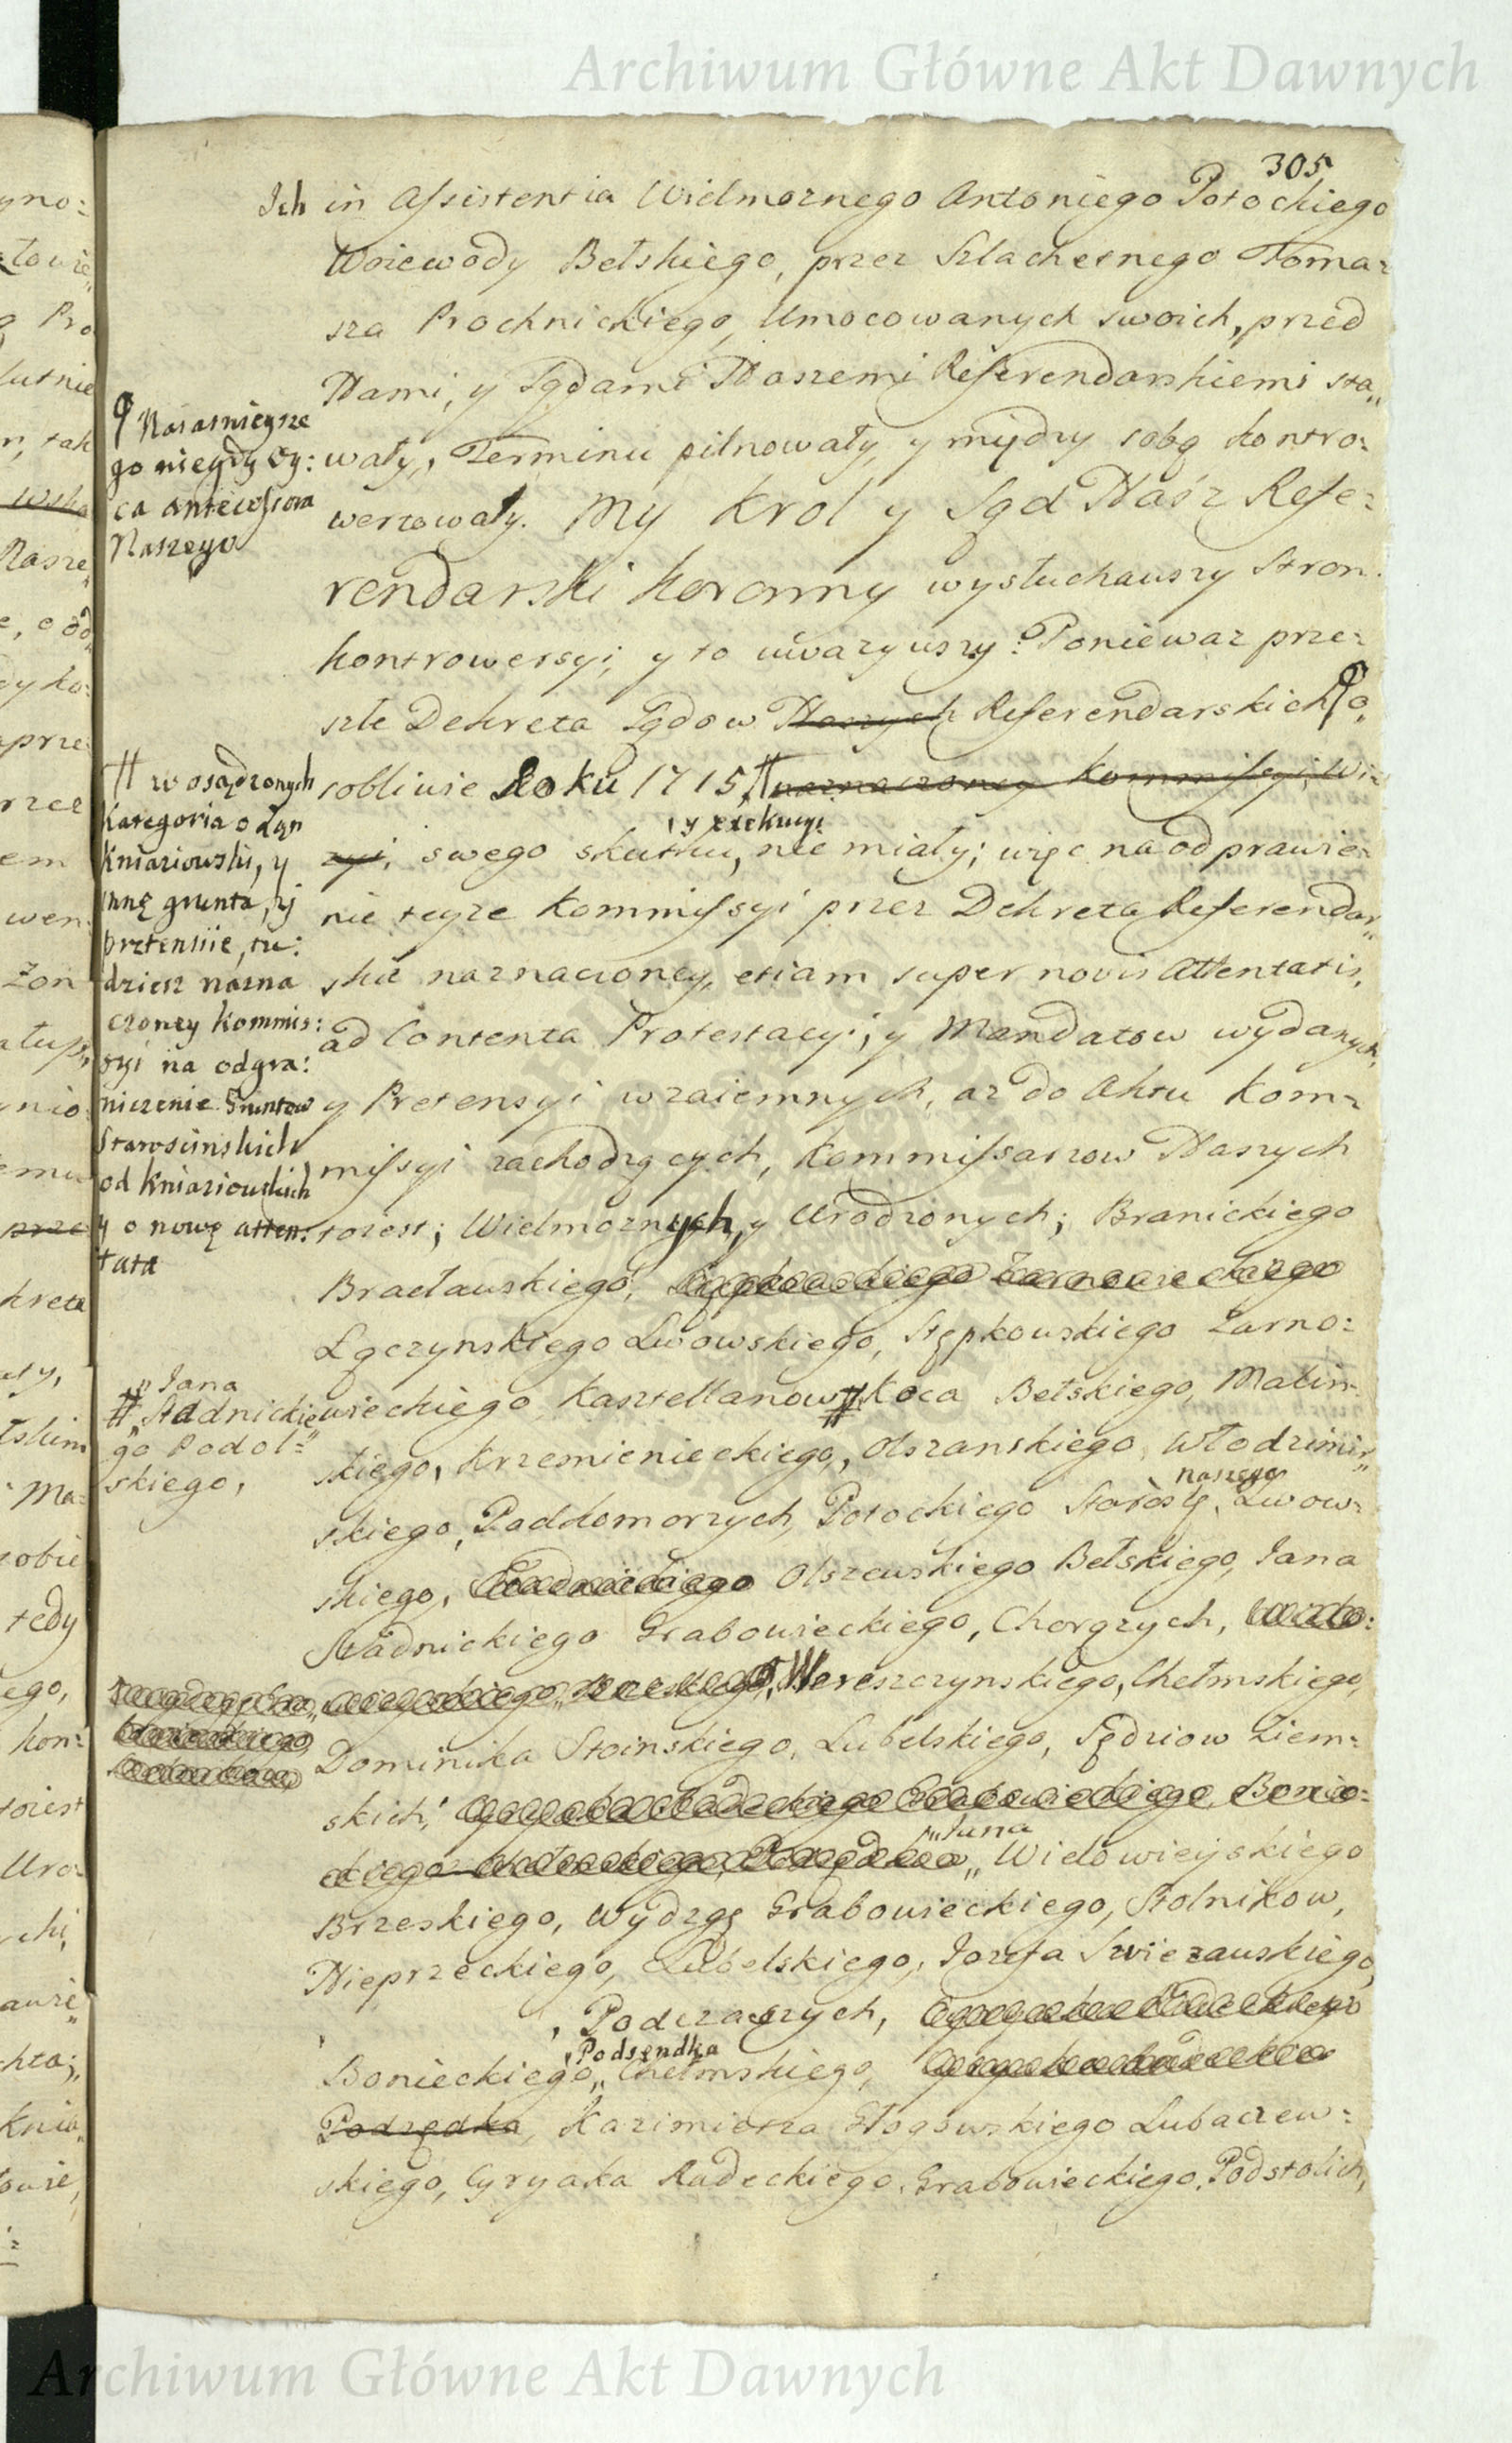 Archiwum Główne Akt Dawnych
305
Ich in Assistentia Wielmoznego Antoniego Potockiego
Woiewody Bełskiego, przez Szlachetnego Toma=
sza Prochnickiego, Umocowanych swoich, przed
Nami, y Sądami Naszemi Referendarskiemi sta„
wały, Terminu pilnowały y między sobą kontro=
wertowały. My Krol y Sąd Nasz Refe=
rendarski Koronny wysłuchawszy Stron
kontrowersyi, y to uwazywszy: Poniewaz prze=
szłe Dekreta Sądow Naszych Referendarskich O„
sobliwie Roku 1715 # naznaczoney Kommissyi, Wi=
, y exekucyi
zyi, swego skutku, nie miały; więc na odprawie=
nie teyze Kommissyi przez Dekreta Referendar„
skie naznaczoney, etiam super novis Attentatis,
ad Contenta Protestacyi, y Mandatow wydanych,
y Pretensyi wzaiemnych, az do Aktu Kom=
missyi zachodzących, Kommissarzow Naszych
toiest; Wielmoznych, y Urodzonych; Branickiego
Bracławskiego,
Łączynskiego Lwowskiego, Stępkowskiego Zarno=
wieckiego Kasztellanow # Koca Bełskiego, Malin=
skiego, Krzemienieckiego, Olszanskiego, Włodzimir„
naszego
skiego, Podkomorzych, Potockiego Starosty, Lwow=
skiego, Olszewskiego Bełskiego, Jana
Stadnickiego Grabowieckiego, Chorązych,
Wereszczynskiego, Chełmskiego,
Dominika Stoinskiego, Lubelskiego, Sędziow Ziem=
skich,
„Jana
Wielowieyskiego
Brzeskiego, Wydzgę Grabowieckiego, Stolnikow,
Nieprzeckiego, Lubelskiego, Jozefa Swiezawskiego,
, Podczaszych,
, Podsendka
Bonieckiego„ Chełmskiego,
Podsędka, Kazimierza Głogowskiego Lubaczew=
skiego, Cyryaka Radeckiego, Grabowieckiego, Podstolich,
Naiasnieysze
go niegdy Oy:
ca antecessora
Naszego
# w osądzonych
Kategoria o
Kniaziowski, y
inne grunta, y
pretensiie, tu:
dziesz nazna
czoney Kommis:
syi na odgra:
niczenie Gruntow
Starościnskich
od Kniaziowskich
y o nowę atten:
tata
„Jana
# „Stadnickie„
go Podol=
skiego,
Archiwum Główne Akt Dawnych